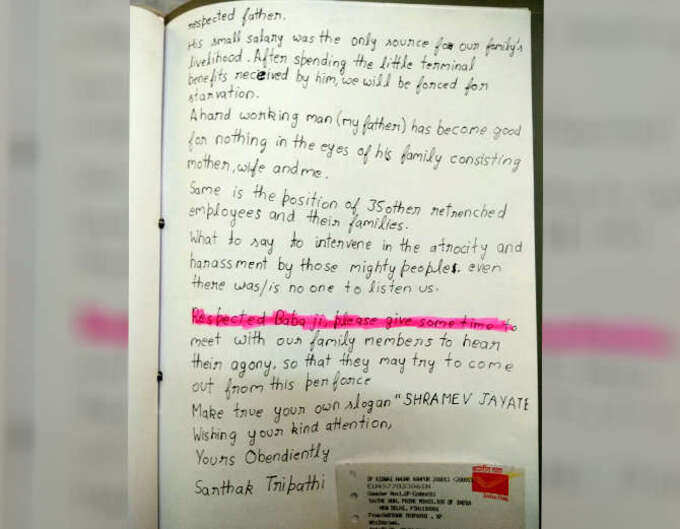 respected father.
His small salary was the only source for our family's
livelihood. After spending the little terminal
benefits received by him, we will be forced for
starvation.
A hard working man (my father) has become good
for nothing in the eyes of his family consisting
mother, wife and me.
Same is the position of 35 other retrenched
employees and their families.
What to say to intervene in the atrocity and
harassment by those mighty peoples. even
there was/is no one to listen us.
Respected Baba ji, please give some time to
meet with our family members to hear
their agony, so that they may try to come
out from this perforce
Make true your own slogan "SHRAMEV JAYATE
Wishing your kind attention,
Yours Obendiently
Sarthak Tripathi
NEW DELHI,